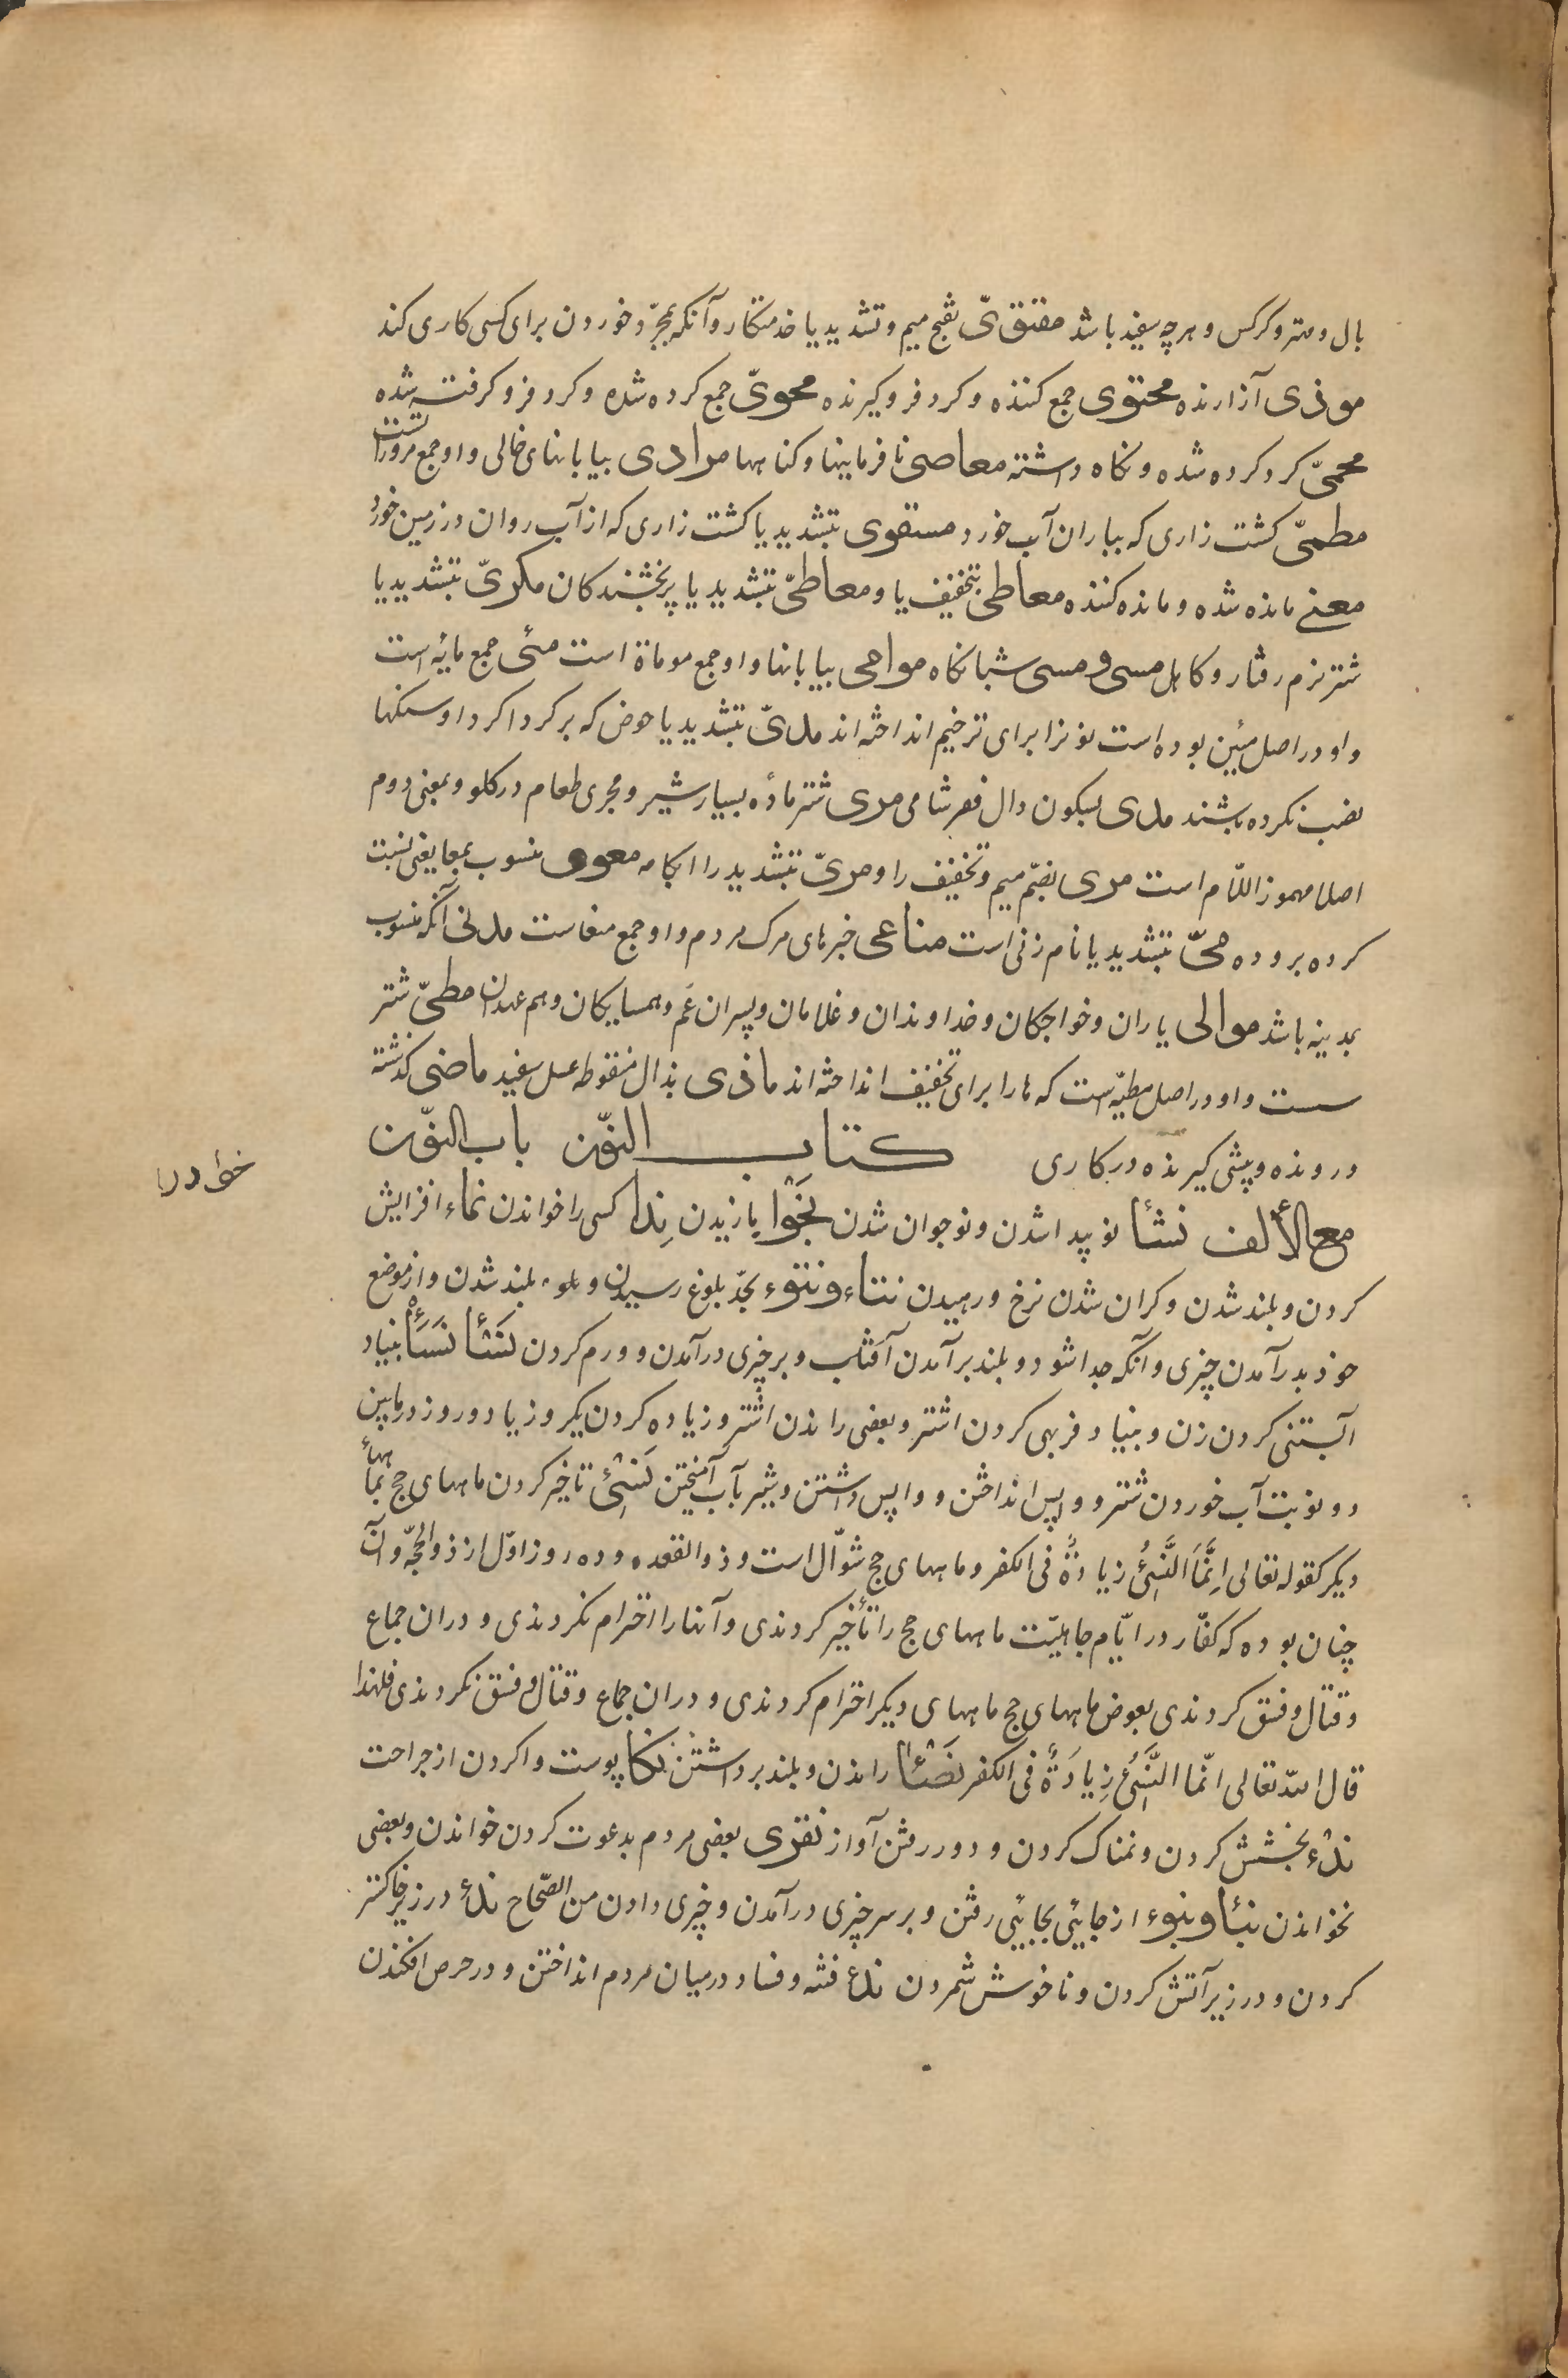 بال و متر و کرکس و هرچه سفید باشد مقتویّ بفتح میم و تشدید یا خدمتکار و آنکه بمجرّد خوردن برای کسی کاری کند
موذی آزارنده محتوی جمع کننده و کرد فرو کیرنده محویّ جمع کرده شده و کرد فرو کرفته شده
محمیّ کرد کرده شده و نکاه داشته معاصی نافرمانیها و کناهها مرادی بیابانهای خالی و او جمع مرورات است
مطمیّ کشت زاری که بباران آب خورد مسقوی بتشدید یا کشت زاری که از آب روان در زمین خورد
معنی مانده شده و مانده کننده معاطی بتخفیف یا و معاطیّ بتشدید یا پربخشندکان مکریّ بتشدید یا
شتر نرم رفتار و کاهل مسی و مسی شبانکاه موامی بیابانها و او جمع موماة است مئی جمع مایه است
و او در اصل مئین بوده است نونرا برای ترخیم انداخته اند مدیّ بتشدید یا حوض که بر کرداکرد او سنکها
نصب نکرده باشند مدی بسکون دال قفیر شامی مری شتر ماده بسیار شیر و مجری طعام در کلو و بمعنی دوم
اصلا مهموز اللّام است مری بضمّ میم و تخفیف را و مریّ بتشدید را آبکامه معوی منسوب بمعا یعنی نسبت
کرده بروده میّ بتشدید یا نام زنی است مناعی خبرهای مرک مردم و او جمع منعاست مدنی آنکه منسوب
بمدینه باشد موالی یاران و خواجکان و خداوندان و غلامان و پسران عَم و همسایکان و هم عهدان مطیّ شتر
ست و او در اصل مطیّه است که ها را برای تخفیف انداخته اند ماذی بذال منقوطه عسل سفید ماضی کذشته
و رونده و پیشی کیرنده در کاری کتاب النّون باب النّون
مع الألف نشأ نو پیدا شدن و نوجوان شدن نَجْوا یا زیدن نِدا کسی را خواندن نماء افزایش
خوٰا در را
کردن و بلند شدن و کران شدن نرخ و رهیدن نتاء و نتوء بحدّ بلوغ رسیدن و بلند شدن و از موضع
خود بدر آمدن چیزی و آنکه جدا شود و بلند برآمدن آفتاب و بر چیزی درآمدن و ورم کردن نَشأ نَسَأ بنیاد
آبستنی کردن زن و بنیاد فربهی کردن اشتر و بعضی راندن اشتر و زیاده کردن یکروز یا دو روز در مابین
دو نوبت آب خوردن شتر و واپس انداختن و واپس داشتن و شیر بآب آمیختن نَسْئ تاخیر کردن ماههای حج بماههاء
دیکر کقوله تعالی اِنَّمَا النَّسِئُ زیادةٌ فی الکفر و ماههای حج شوّال است و ذوالقعده و ده روز اوّل از ذوالحجّه و آن
چنان بوده که کفّار در ایّام جاهلیّت ماههای حج را تأخیر کردندی و آنها را احترام نکردندی و دران جماع
و قتال و فسق کردندی بعوض ماههای حج ماههای دیکر احترام کردندی و دران جماع و قتال و فسق نکردندی فلهذا
قال الله تعالی انّما النَّسِئُ زِیادَةٌ فی الکفر نَصْئا راندن و بلند برداشتن نکا پوست وا کردن از جراحت
ندٰء بخشش کردن و نمناک کردن و دور رفتن آواز نقری بعضی مردم بدعوت کردن خواندن و بعضی
نخواندن نبئا و نبوء از جائیی بجائیی رفتن و بر سر چیزی درآمدن و چیزی دادن من الصّحاح ندٰء در زیر خاکستر
کردن و در زیر آتش کردن و ناخوش شمردن ندٰء فتنه و فساد در میان مردم انداختن و در حرص افکندن